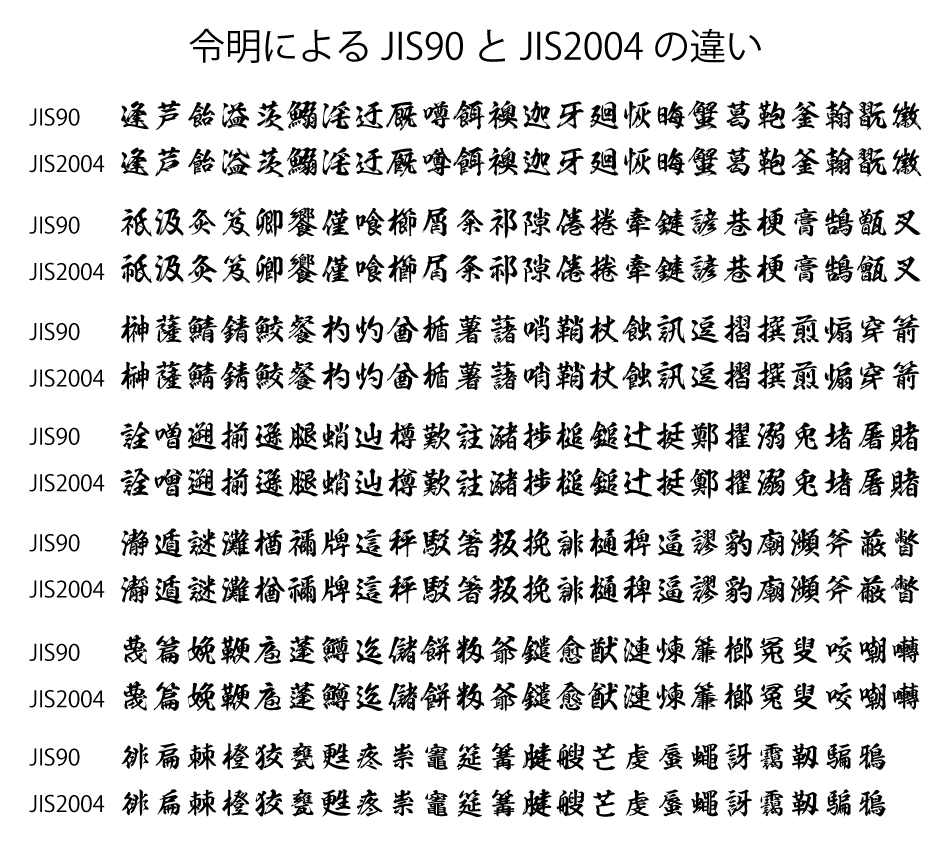 令明による JIS90 と JIS2004 の違い
JIS90 逢芦飴溢茨鰯淫迂厩噂餌襖迦牙廻恢晦蟹葛鞄釜翰翫徽
JIS2004 逢芦飴溢茨鰯淫迂厩噂餌襖迦牙廻恢晦蟹葛鞄釜翰翫徽
JIS90 祇汲灸笈卿饗僅喰櫛屑粂祁隙倦捲牽鍵諺巷梗膏鵠甑叉
JIS2004 祇汲灸笈卿饗僅喰櫛屑粂祁隙倦捲牽鍵諺巷梗膏鵠甑叉
JIS90 榊薩鯖錆鮫餐杓灼酋楯薯藷哨鞘杖蝕訊逗摺撰煎煽穿箭
JIS2004 榊薩鯖錆鮫餐杓灼酋楯薯藷哨鞘杖蝕訊逗摺撰煎煽穿箭
JIS90 詮噌遡揃遜腿蛸辿樽歎註瀦捗槌鎚辻挺鄭擢溺兎堵屠賭
JIS2004 詮噌遡揃遜腿蛸辿樽歎註瀦捗槌鎚辻挺鄭擢溺兎堵屠賭
JIS90 瀞遁謎灘楢禰牌這秤駁箸叛挽誹樋稗逼謬豹廟瀕斧蔽瞥
JIS2004 瀞遁謎灘楢禰牌這秤駁箸叛挽誹樋稗逼謬豹廟瀕斧蔽瞥
JIS90 蔑篇娩鞭庖蓬鱒迄儲餅籾爺鑓愈猷漣煉簾榔冤叟咬嘲囀
JIS2004 蔑篇娩鞭庖蓬鱒迄儲餅籾爺鑓愈猷漣煉簾榔冤叟咬嘲囀
JIS90 徘扁棘橙狡甕甦疼祟竈筵篝腱艘芒虔蜃蠅訝靄靱騙鴉
JIS2004 徘扁棘橙狡甕甦疼祟竈筵篝腱艘芒虔蜃蠅訝靄靱騙鴉